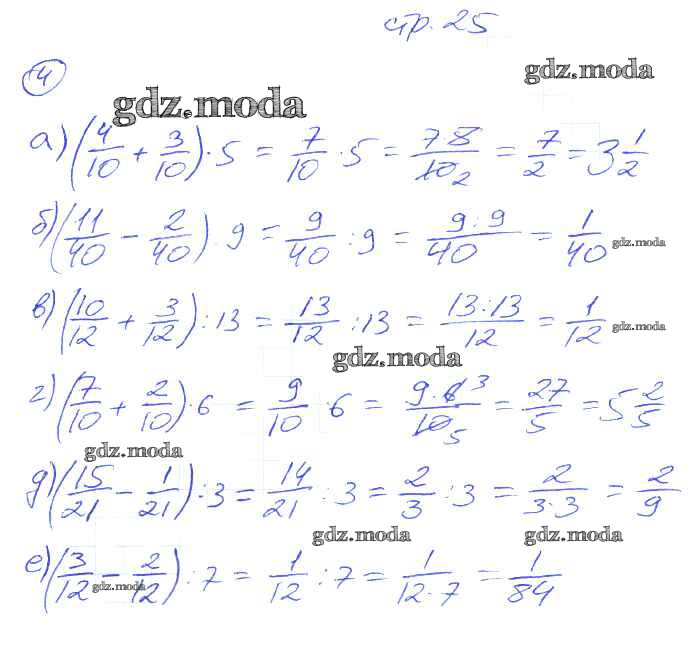 стр. 25
4
gdz.moda
gdz.moda
а) (4/10 + 3/10) · 5 = 7/10 · 5 = 7·5/10 2 = 7/2 = 3 1/2
б) (11/40 − 2/40) · 9 = 9/40 : 9 = 9:9/40 = 1/40 gdz.moda
в) (10/12 + 3/12) : 13 = 13/12 : 13 = 13:13/12 = 1/12 gdz.moda
gdz.moda
г) (7/10 + 2/10) · 6 = 9/10 · 6 = 9·6 3/10 5 = 27/5 = 5 2/5
gdz.moda
д) (15/21 − 1/21) : 3 = 14/21 : 3 = 2/3 : 3 = 2/3·3 = 2/9
gdz.moda gdz.moda
е) (3/12 − 2/12) : 7 = 1/12 : 7 = 1/12·7 = 1/84
gdz.moda